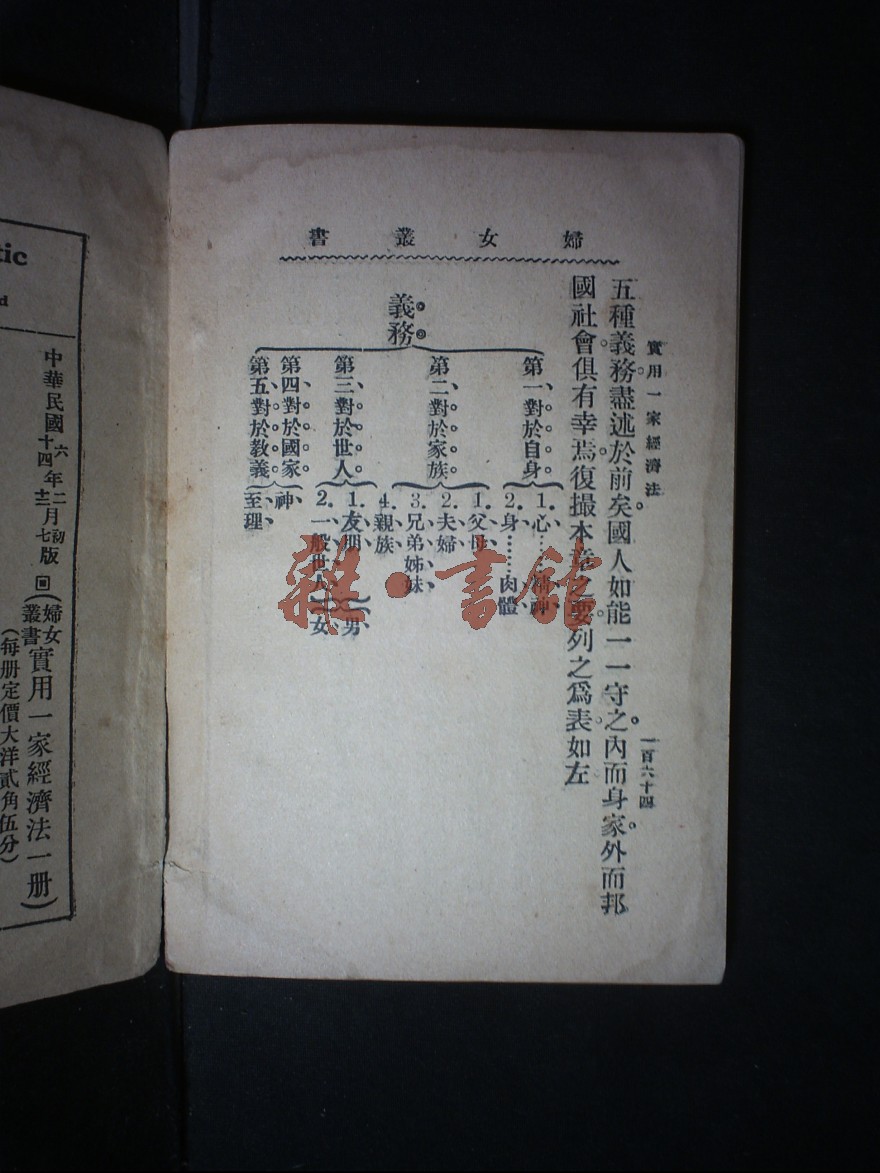 婦女叢書
實用一家經濟法
一百六十四
五種義務盡述於前矣國人如能一一守之內而身家外而邦
國社會俱有幸焉復撮本章之要列之爲表如左
義務
第一對於自身
1.心……精神
2.身……肉體
第二對於家族
1.父母
2.夫婦
3.兄弟姊妹
4.親族
第三對於世人
1.友朋
2.一般世人
男
女
第四對於國家
第五對於教義
神
至理
雜·書館
tic
d
中華民國六年二月初版
十四年十二月七版
(婦女叢書實用一家經濟法一册)
(每册定價大洋貳角伍分)